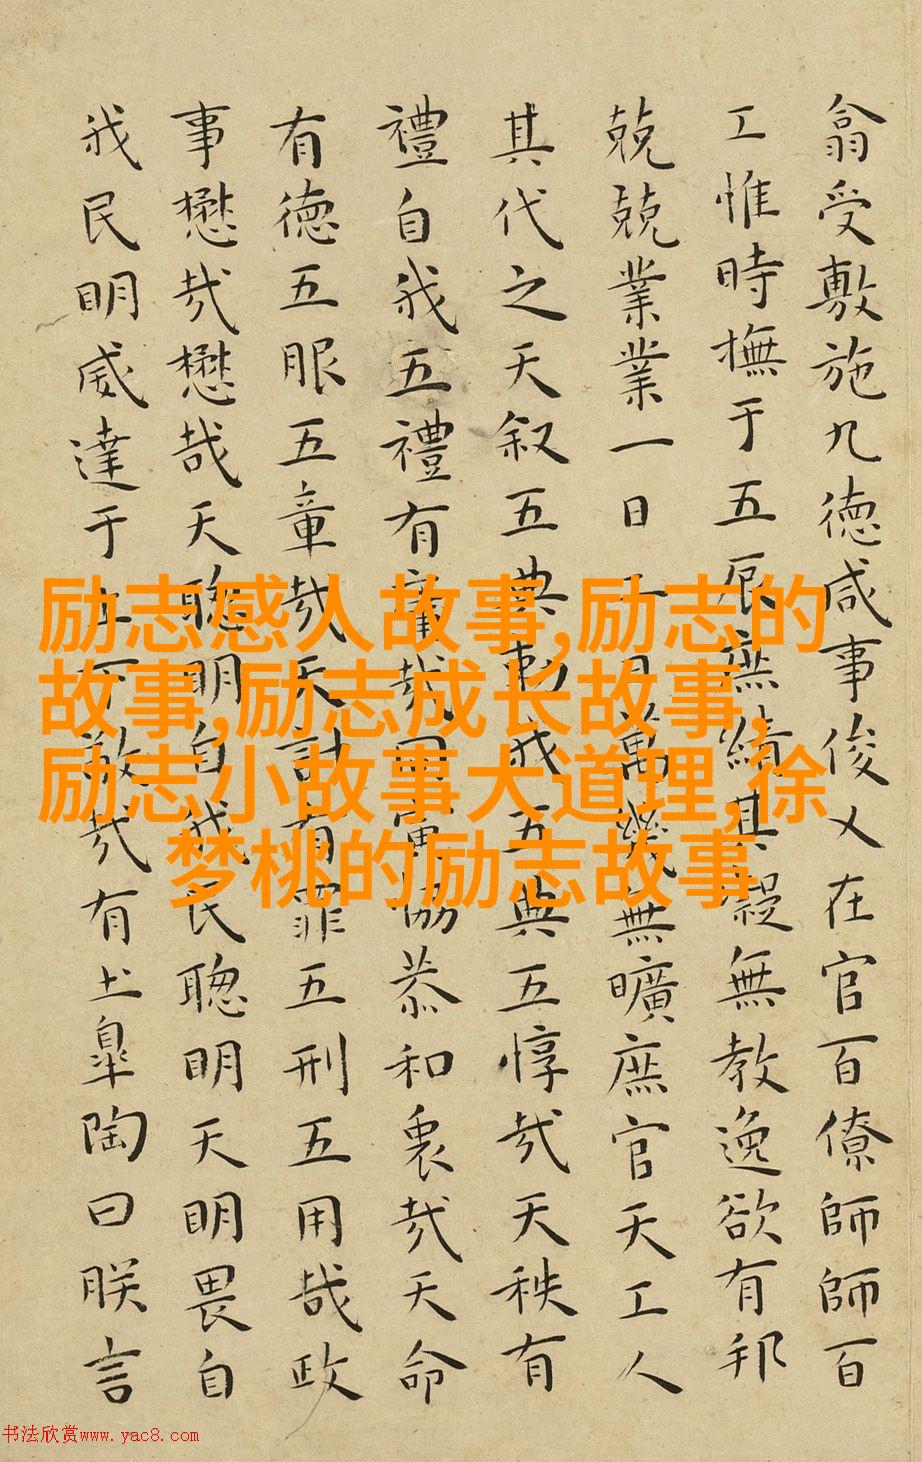 翕受敷施九德咸事俊乂在官百僚師師百
工惟時撫于五辰庶績其凝無教逸欲有邦
兢兢業業一日二日萬幾無曠庶官天工人
其代之天叙五典勑我五典五惇哉天秩有
禮自我五禮有庸哉同寅協恭和衷哉天命
有德五服五章哉天討有罪五刑五用哉政
事懋哉懋哉天聰明自我民聰明天明畏自
我民明威達于上下敬哉有土皐陶曰朕言
励志感人故事,励志的
故事,励志成长故事,
励志小故事大道理,徐
梦桃的励志故事
书法欣赏www.yac8.com